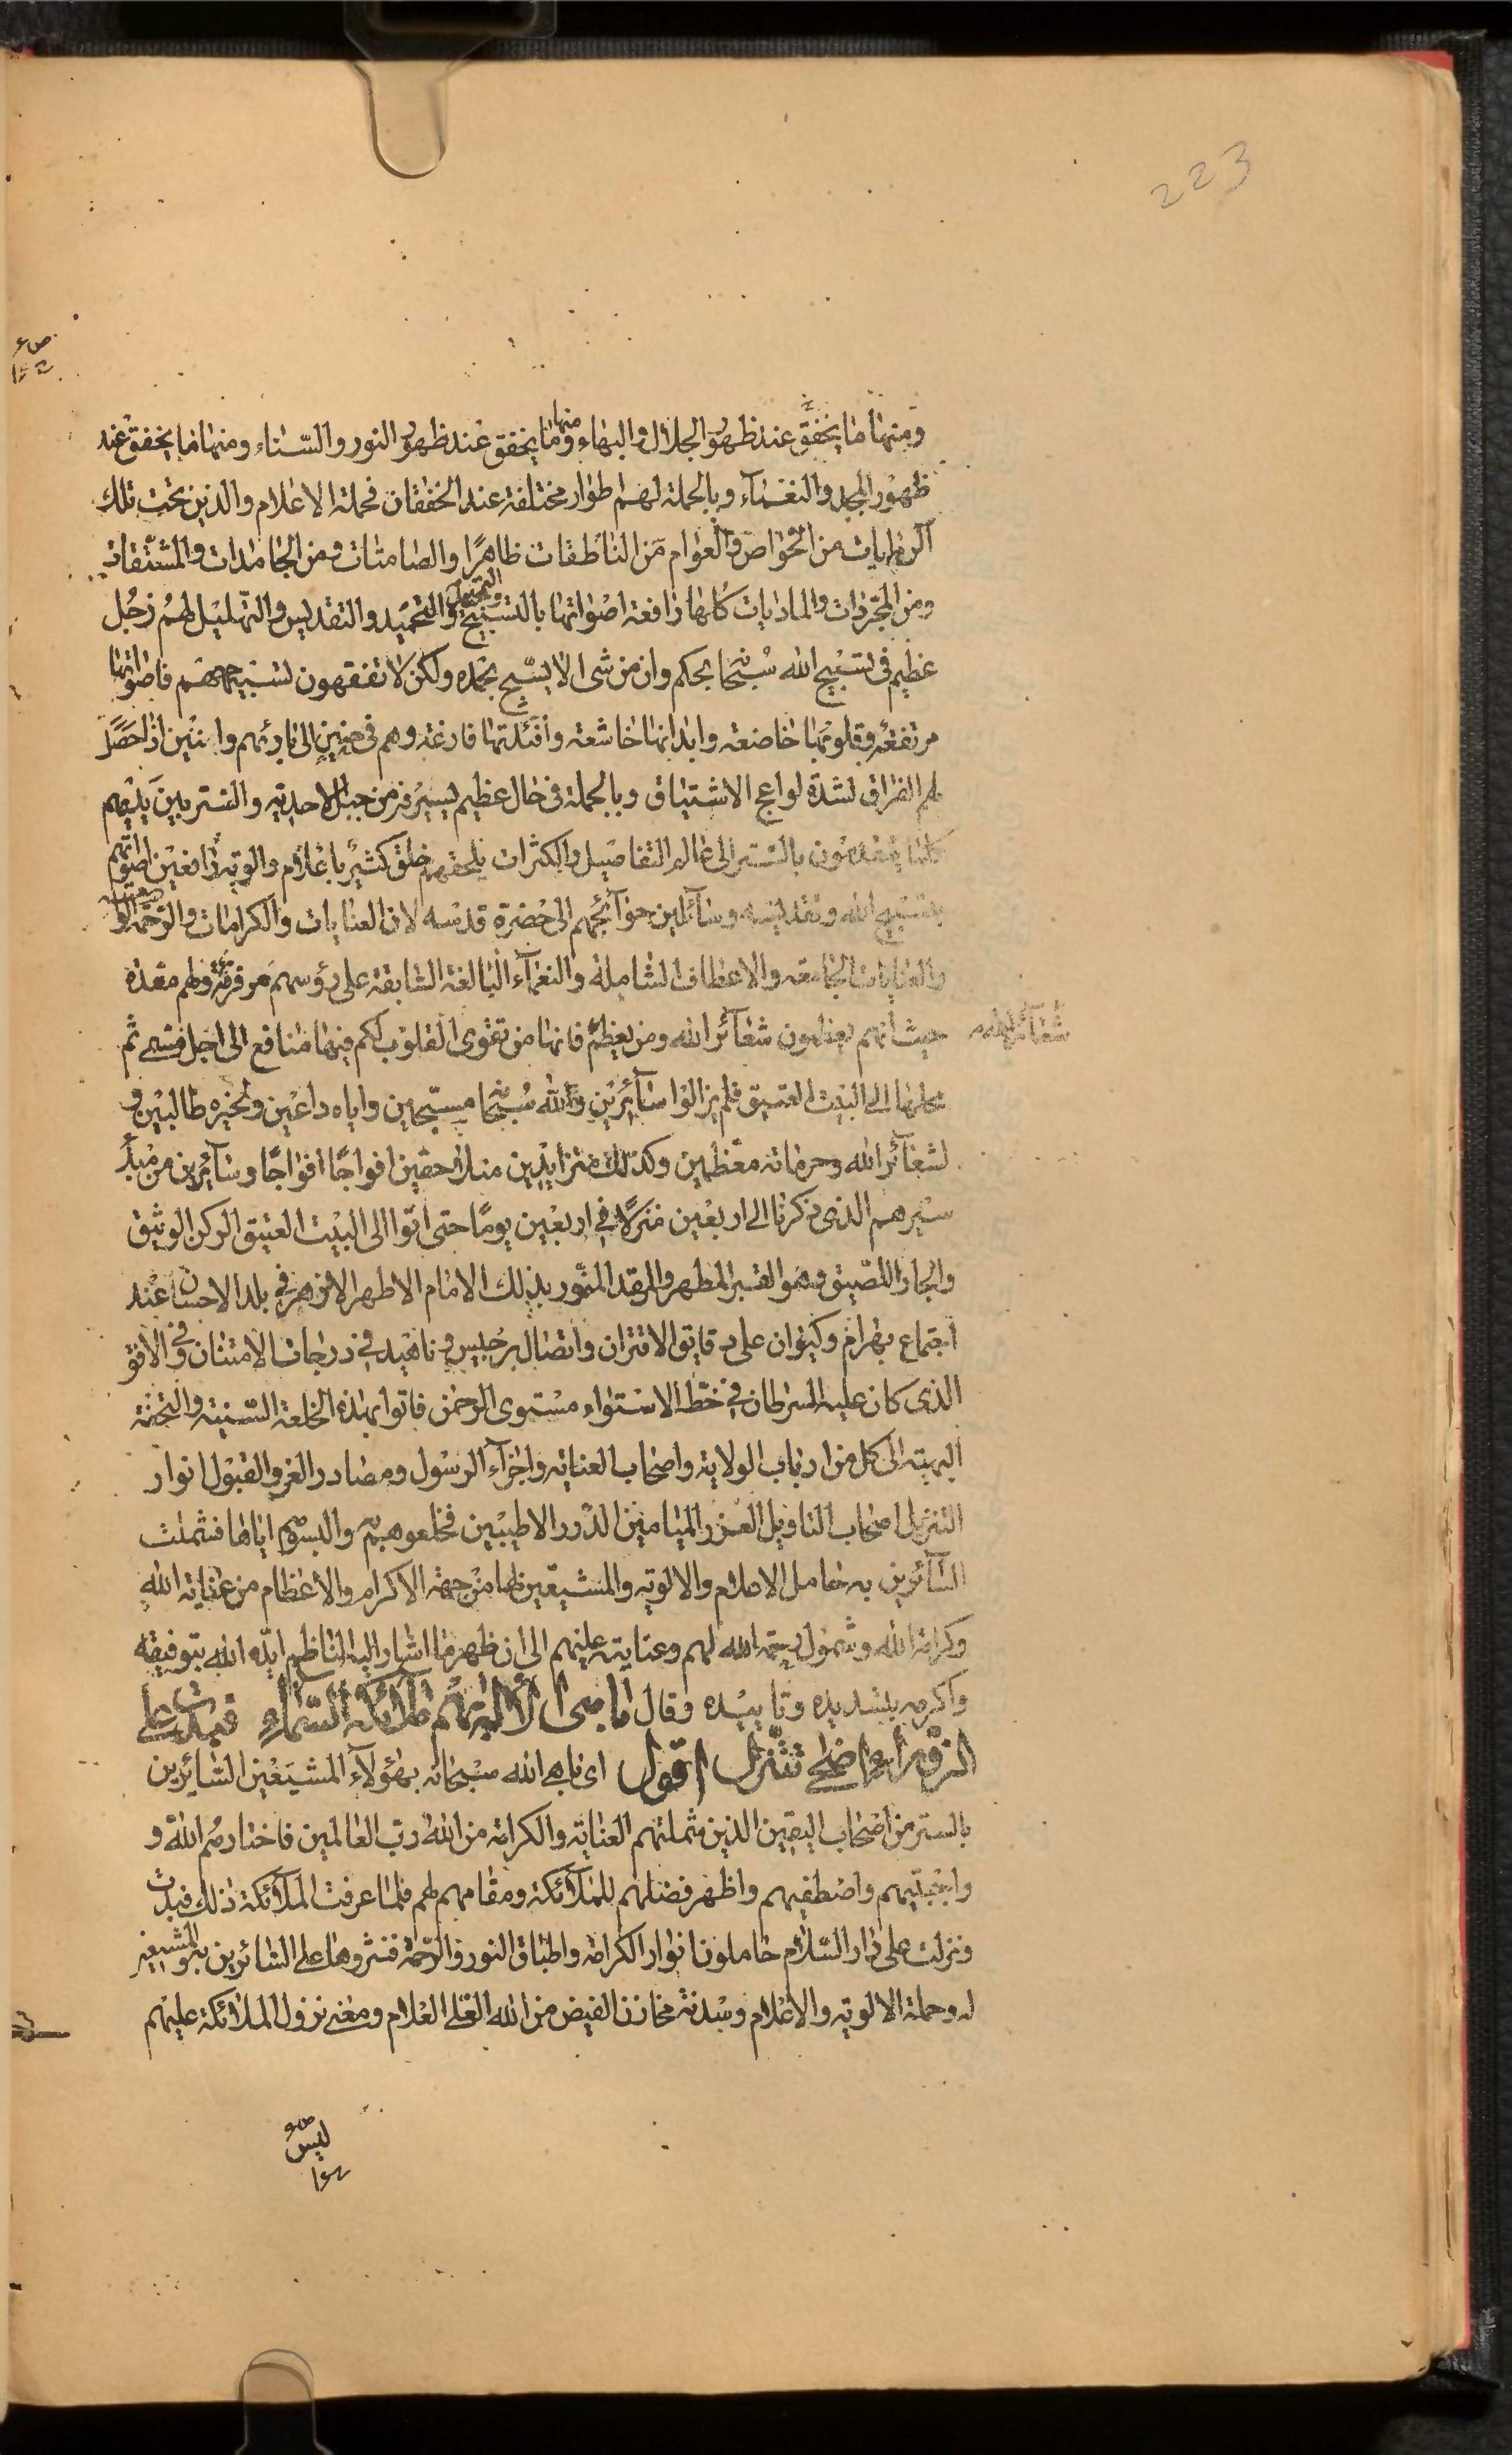 223
ومنها ما يخفق عند ظهور الجلال والبهاء ومنها ما يخفق عند ظهور النور والسناء ومنها ما يخفق عند
ظهور المجد والنعماء وبالجملة لهم اطوار مختلفة عند الخفقان فحملة الاعلام والذين تحت تلك
الرايات من الخواص والعوام من الناطقات ظاهرًا والصامتات ومن الجامدات والمشتقات
ومن المجردات والماديات كلها رافعة اصواتها بالتسبيح والتحميد والتقديس والتهليل لهم زجل
عظيم في تسبيح الله سبحانه بحكم وان من شئ الا يسبح بحمده ولكن لا تفقهون تسبيحهم فاصواتها
مرتفعة وقلوبها خاضعة وابدانها خاشعة وافئدتها فارغة وهم في حنين الى بارئهم وانين اذا حصل
لهم الفراق لشدة لواعج الاشتياق وبالجملة في حال عظيم يسيرون من جبل الاحدية والستر بين يديهم
كلما يتقدمون بالستر الى عالم التفاصيل والكثرات يلحقهم خلق كثير باعلام والوية رافعين اصواتهم
بتسبيح الله وتقديسه وسائلين حوائجهم الى حضرة قدسه لان العنايات والكرامات والرحمة الواسعة
والعنايات الجامعة والالطاف الشاملة والنعماء البالغة السابقة على رؤسهم مرفرفة ولهم معدة
حيث انهم يعظمون شعائر الله ومن يعظم شعائر الله فانها من تقوى القلوب لكم فيها منافع الى اجل مسمى ثم
محلها الى البيت العتيق فلم يزالوا سائرين ولله سبحانه مسبحين واياه داعين ولخيره طالبين و
لشعائر الله وحرماته معظمين وكذلك متزايدين متلاحقين افواجًا افواجًا وسائرين من مبدأ
سيرهم الذي ذكرنا الى اربعين منزلًا في اربعين يومًا حتى اتوا الى البيت العتيق الركن الوثيق
والجار اللصيق وهو القبر المطهر والمرقد المنور بذلك الامام الاطهر الازهر في بلد الاحسان عند
اجتماع بهرام وكيوان على دقايق الاقتران واتصال برجيس وناهيد في درجات الامتنان وفي الافق
الذي كان عليه السرطان في خط الاستواء مستوى الرحمن فاتوا بهذه الخلعة السنية والتحفة
البهية الى كل من ارباب الولاية واصحاب العناية واجزاء الرسول ومصادر العز والقبول انوار
التنزيل اصحاب التاويل الغرر الميامين الدرر الاطيبين فخلعوهم والبسوهم اياها فشملت
السائرين به حامل الاعلام والالوية والمشيعين لها من جهة الاكرام والاعظام من عناية الله
وكرامة الله وشمول رحمة الله لهم وعنايته عليهم الى ان ظهر ما اشار اليه الناظم ايده الله بتوفيقه
واكرمه بتسديده وتاييده وقال
الزوراء تتنزل اقول اى باهى الله سبحانه بهؤلاء المشيعين السائرين
بالستر من اصحاب اليقين الذين شملتهم العناية والكرامة من الله رب العالمين فاختارهم الله و
واجتبيهم واصطفيهم واظهر فضلهم للملائكة ومقامهم لهم فلما عرفت الملائكة ذلك فبدت
ونزلت على دار السلام حاملون انوار الكرامة واطباق النور والرحمة فنثروها على السائرين به والمشيعين
له وحملة الالوية والاعلام وسدنة مخازن الفيض من الله العلى العلام ومعنى نزول الملائكة عليهم